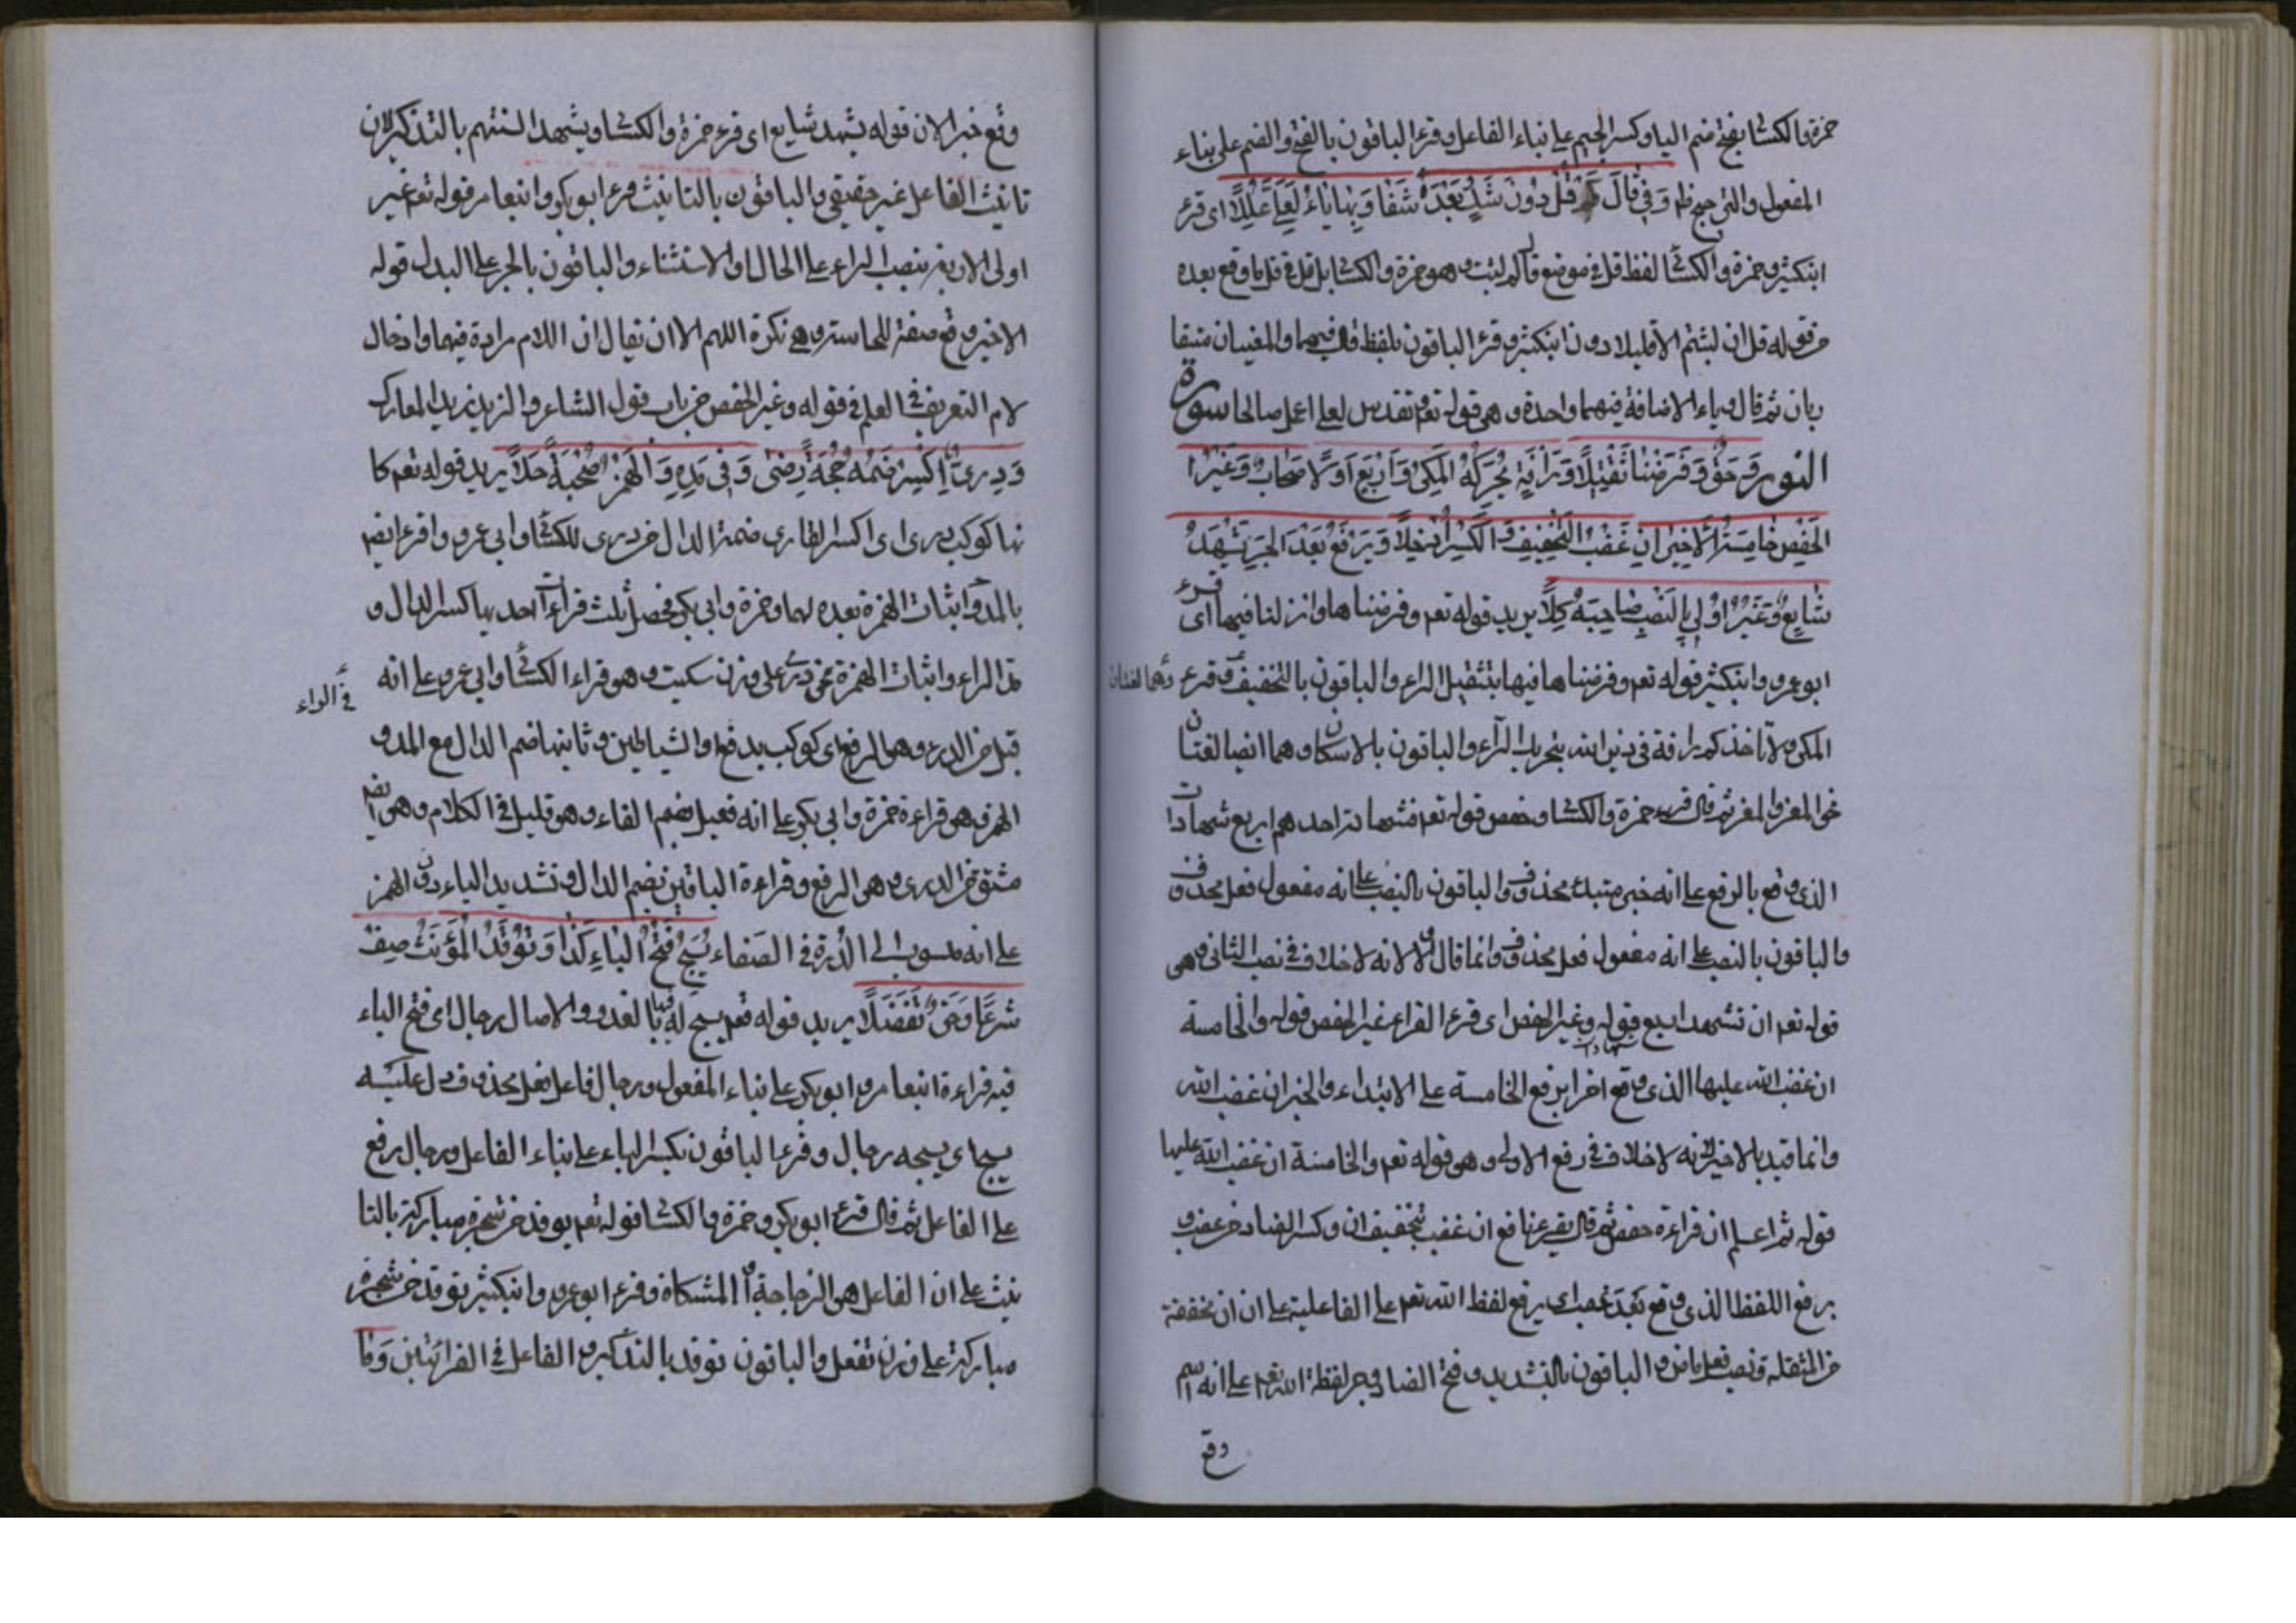 حمزة والكسائى بفتح ضم الياء وكسر الجيم على بناء الفاعل وقرء الباقون بالفتح والضم على بناء
المفعول والترجيح ظ وَفِى قَالَ كَمْ قُلْ دُونَ شَكٍّ وَبَعْدَهُ شَفَا وَبِهَا يَاءٌ لَعَلِّى عُلِّلَا اى قرء
ابنكثير وحمزة والكسائى لفظ قل فى موضع قال كم لبثتم وهو حمزة والكسائى بل قل فى قل ما وقع بعده
من قوله قل ان لبثتم الا قليلا دون ابنكثير وقرء الباقون بلفظ قال فيهما والمعنيان متقا
ربان ثم قال وياء الاضافة فيهما واحدة وهى قوله تعم وتقدس لعلى اعمل صالحا سورة
النور وَحَقٌّ وَفَرَضْنَا ثَقِيلًا وَرَأْفَةٌ يُحَرِّكُهُ الْمَكِّى وَأَرْبَعُ أَوَّلًا صِحَابٌ وَغَيْرُ
الْحَفْصِ خَامِسَةُ الْأَخِيرُ أَنْ غَضِبَ التَّخْفِيفُ وَالْكَسْرُ أُدْخِلَا وَيَرْفَعُ بَعْدُ الْجَرَّ يَشْهَدُ
شَايِعٌ وَغَيْرُ أُولِى بِالنَّصْبِ صَاحِبُهُ كَلَا يريد قوله تعم وفرضناها وانزلنا فيها اى قرء
ابوعمرو وابنكثير قوله تعم وفرضناها فيها بتثقيل الراء والباقون بالتخفيف وقرء وهما لغتان
المكى ولا تأخذكم بهما رافة فى دين الله بتحريك الراء والباقون بالاسكان وهما ايضا لغتان
نحو المعز والمعز ثم قال قرء حمزة والكسائى وحفص قوله تعم فشهادة احدهم اربع شهادات
الذى وقع بالرفع على انه خبر مبتدء محذوف والباقون بالنصب على انه مفعول فعل محذوف
والباقون بالنصب على انه مفعول فعل محذوف وانما قال اولا لانه لا خلاف فى نصب الثانى وهى
قوله تعم ان تشهد اربع شهادات قوله وغير الحفص اى قرء القراء غير الحفص قوله والخامسة
ان غضب الله عليها الذى وقع اخرا برفع الخامسة على الابتداء والخبر ان غضب الله
وانما قيد بالاخير لانه لا خلاف فى رفع الاولى وهى قوله تعم والخامسة ان غضب الله عليها
قوله ثم اعلم ان قراءة حفص ثم قال يقرء نافع ان غضب بتخفيف ان وكسر الضاد من غضب و
برفع اللفظ الذى وقع بعد غضب اى يرفع لفظ الله تعم على الفاعلية على ان ان مخففة
من المثقلة وغضب فعل ماض والباقون بالتشديد وفتح الضاد وجر لفظة الله تعم على انه اسم
وقع
وقع خبرا لان قوله يشهد شايع اى قرء حمزة والكسائى يشهد السنتهم بالتذكير لان
تانيث الفاعل غير حقيقى والباقون بالتانيث وقرء ابوبكر وابنعامر قوله تعم غير
اولى الاربة بنصب الراء على الحال او الاستثناء والباقون بالجر على البدل قوله
الاخير وقع صفة للخامسة وهى نكرة اللهم الا ان يقال ان اللام مرادة فيها وادخال
لام التعريف فى العلم فى قوله وغير الحفص من باب قول الشاعر والزيد زيد المعارك
وَدُرِّىٌّ اكْسِرْ ضَمَّهُ حُجَّةً رِضًى وَفِى مَدِّهِ وَالْهَمْزِ صُحْبَةٌ حَلَا يريد قوله تعم كا
نها كوكب درى اى اكسر لقارى ضمة الدال من درى للكسائى وابى عمرو واقرء ايضا
بالمد واثبات الهمزة بعده لهما وحمزة وابى بكر فحصل ثلث قراءات احديها كسر الدال و
مد الراء واثبات الهمزة نحو درئ على وزن سكيت وهو قراءة الكسائى وابى عمرو على انه
فى الراء
قيل من الدرء وهو الدفع اى كوكب يدفع الشياطين وثانيها ضم الدال مع المد و
الهمز وهو قراءة حمزة وابى بكر على انه فعيل بضم الفاء وهو قليل فى الكلام وهى ايضا
مشتق من الدرء وهو الدفع وقراءة الباقين بضم الدال وتشديد الياء دون الهمز
على انه منسوب الى الدرة فى الصفاء يُسَبِّحُ فَتْحُ الْبَاءِ كَذَا وَتُوقَدُ الْمُؤَنَّثُ صِفْ
شَرْعًا وَحَقٌّ تَفَعَّلَا يريد قوله تعم يسبح له فيها بالغدو والاصال رجال اى فتح الباء
فيه قراءة ابنعامر وابوبكر على بناء المفعول ورجال فاعل فعل محذوف دل عليه
يسبح اى يسبحه رجال وقرء الباقون بكسر الباء على بناء الفاعل ورجال رفع
على الفاعل ثم قال قرء ابوبكر وحمزة والكسائى قوله تعم توقد من شجرة مباركة بالتا
نيث على ان الفاعل هو الزجاجة او المشكاة وقرء ابوعمرو وابنكثير توقد من شجرة
مباركة على وزن تفعل والباقون توقد بالتذكير والفاعل فى القرائتين وَمَا